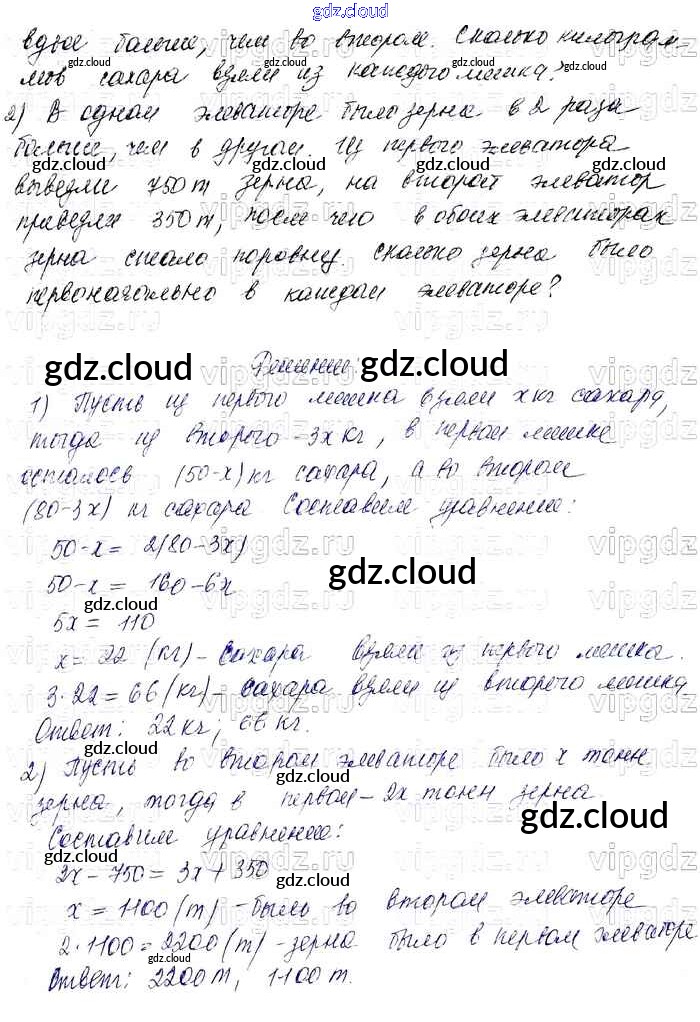 gdz.cloud
вдвое больше, чем во втором. Сколько килограм-
мов сахара взяли из каждого мешка?
2) В одном элеваторе было зерна в 2 раза
больше, чем в другом. Из первого элеватора
вывезли 750 т зерна, на второй элеватор
привезли 350 т, после чего в обоих элеваторах
зерна стало поровну. Сколько зерна было
первоначально в каждом элеваторе?
Решение:
1) Пусть из первого мешка взяли x кг сахара,
тогда из второго – 3x кг, в первом мешке
осталось (50-x) кг сахара, а во втором
(80-3x) кг сахара Составим уравнение:
50-x = 2(80-3x)
50-x = 160-6x
5x = 110
x = 22 (кг) – сахара взяли из первого мешка.
3·22 = 66 (кг) – сахара взяли из второго мешка
Ответ: 22 кг; 66 кг.
2) Пусть во втором элеваторе было x тонн
зерна, тогда в первом – 2x тонн зерна
Составим уравнение:
2x-750 = 3x+350
x = 1100 (т) – было во втором элеваторе
2·1100 = 2200 (т) – зерна было в первом элеваторе
Ответ: 2200 т, 1100 т.